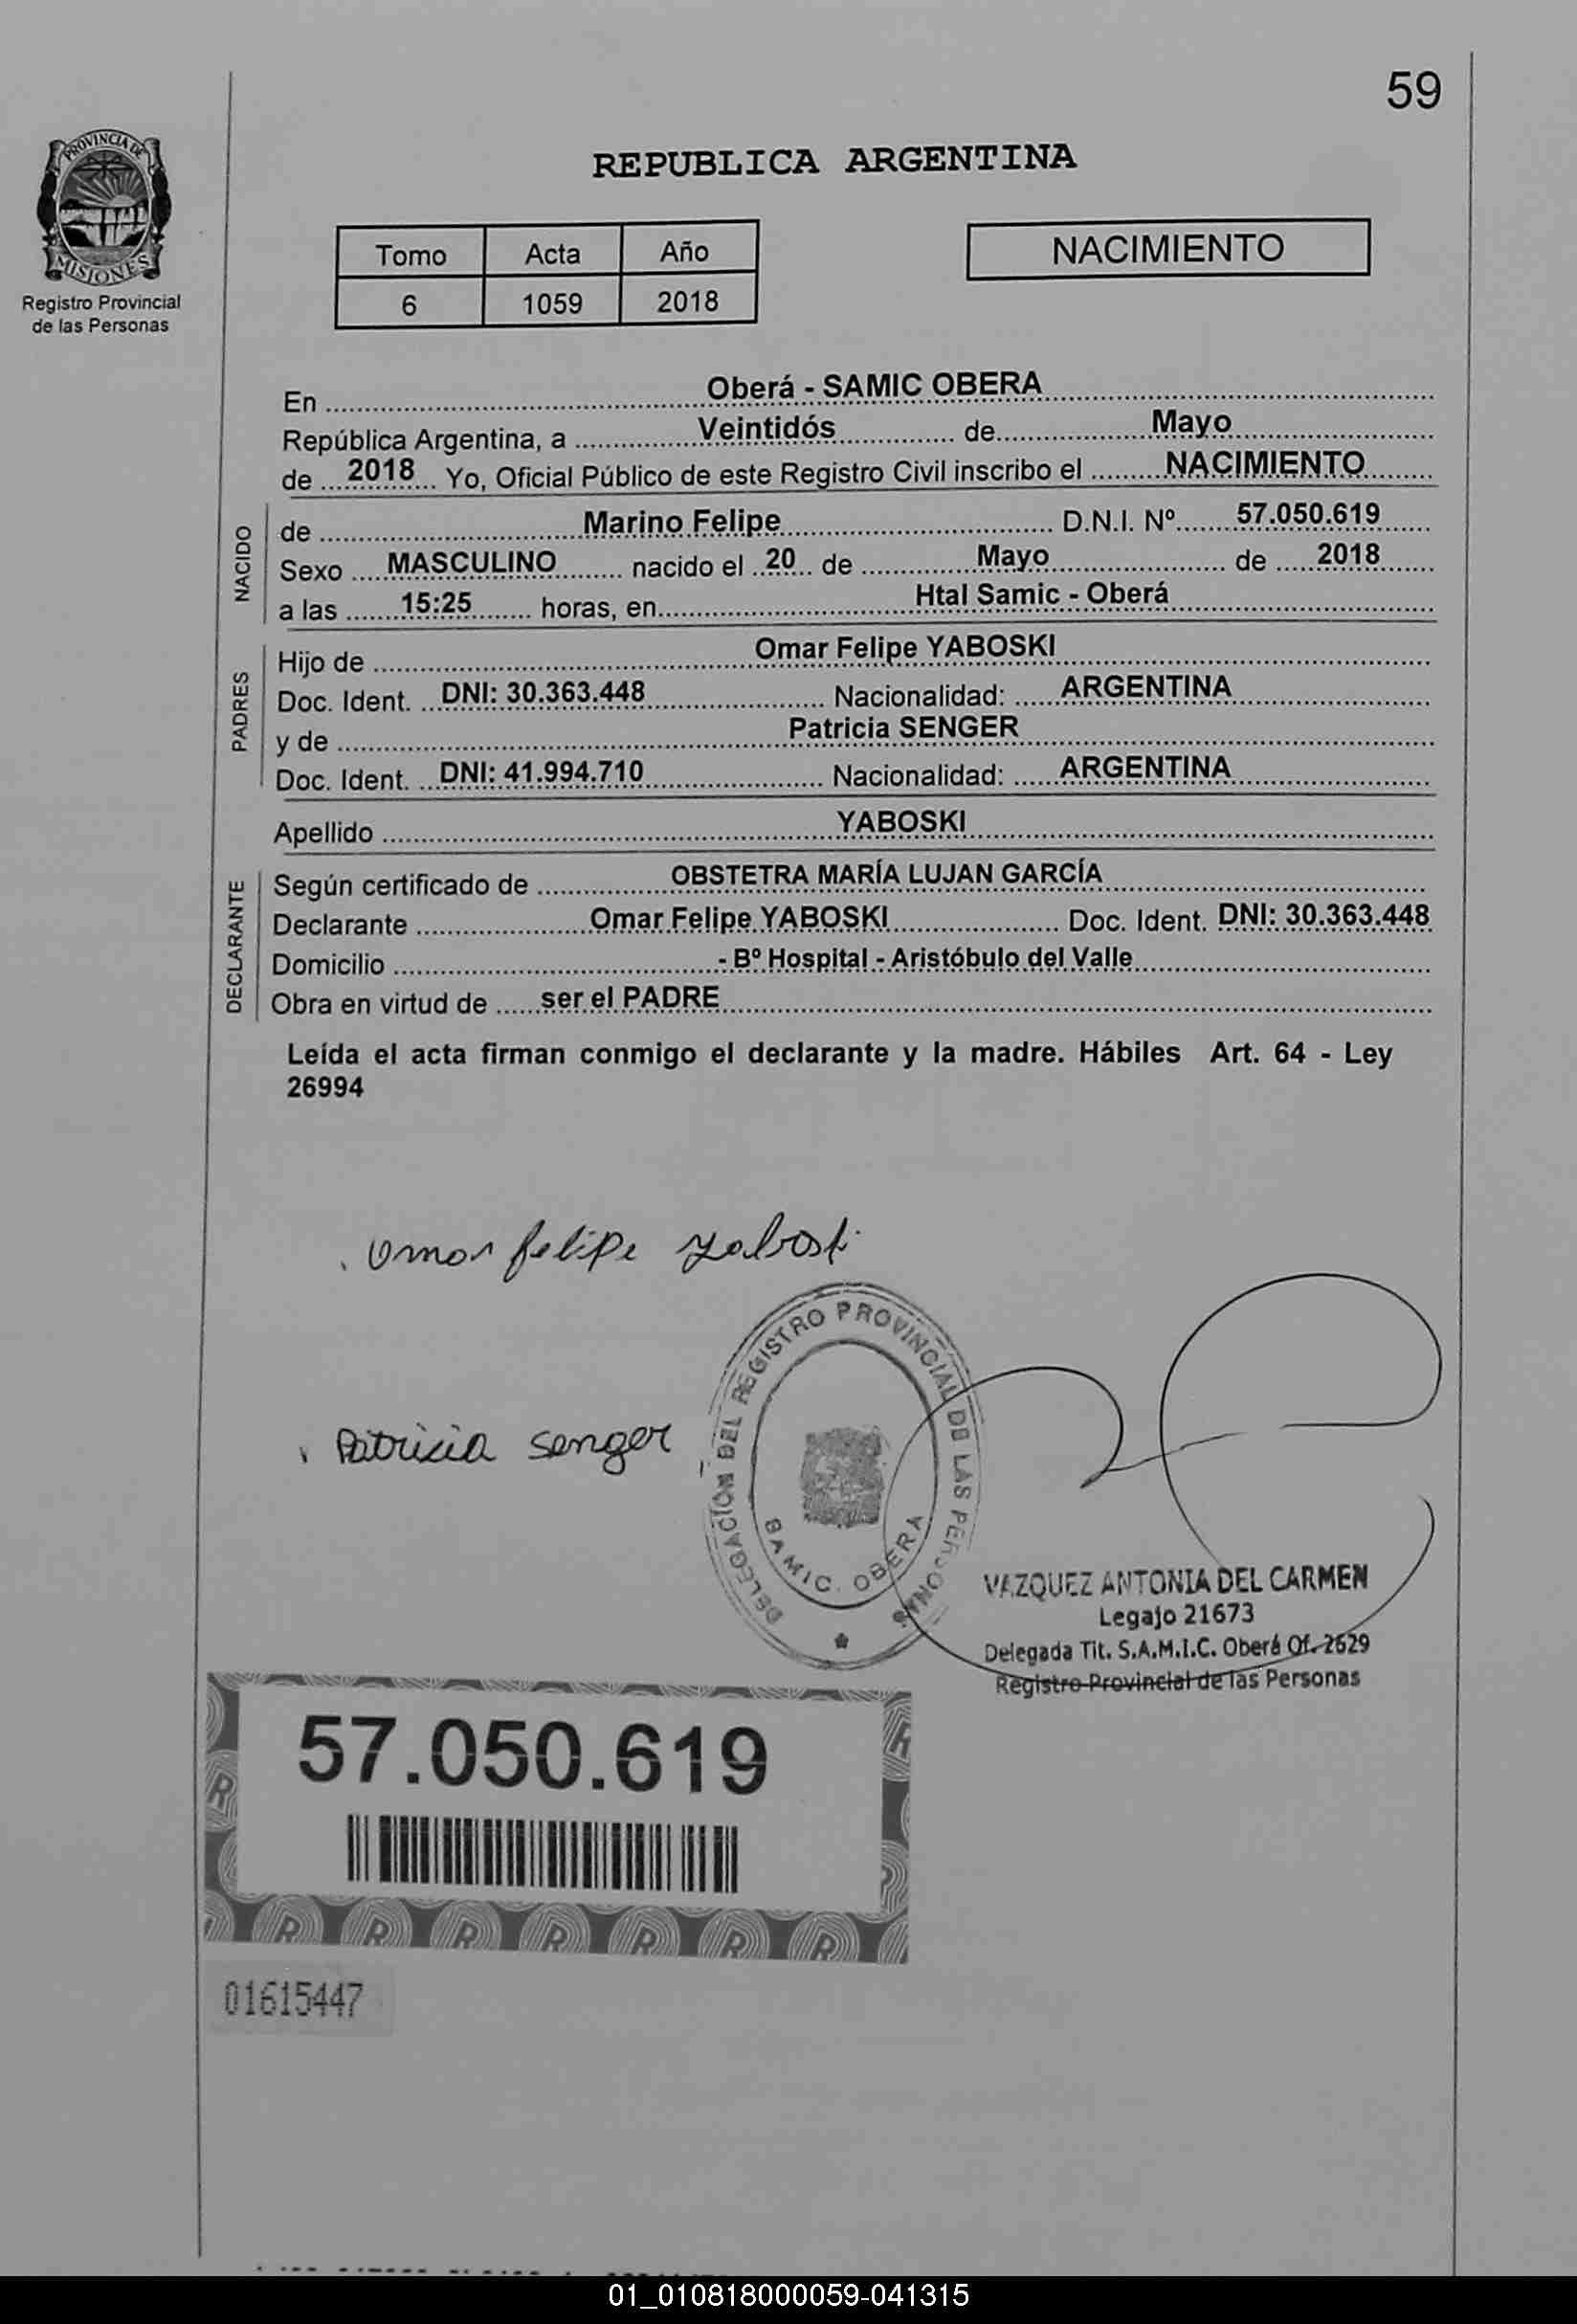 59
PROVINCIA DE
MISIONES
Registro Provincial
de las Personas
REPUBLICA ARGENTINA
Tomo Acta Año
6 1059 2018
NACIMIENTO
En Oberá - SAMIC OBERA
República Argentina, a Veintidós de Mayo
de 2018 Yo, Oficial Público de este Registro Civil inscribo el NACIMIENTO
NACIDO
de Marino Felipe D.N.I. Nº 57.050.619
Sexo MASCULINO nacido el 20 de Mayo de 2018
a las 15:25 horas, en Htal Samic - Oberá
PADRES
Hijo de Omar Felipe YABOSKI
Doc. Ident. DNI: 30.363.448 Nacionalidad: ARGENTINA
y de Patricia SENGER
Doc. Ident. DNI: 41.994.710 Nacionalidad: ARGENTINA
Apellido YABOSKI
DECLARANTE
Según certificado de OBSTETRA MARÍA LUJAN GARCÍA
Declarante Omar Felipe YABOSKI Doc. Ident. DNI: 30.363.448
Domicilio - Bº Hospital - Aristóbulo del Valle
Obra en virtud de ser el PADRE
Leída el acta firman conmigo el declarante y la madre. Hábiles Art. 64 - Ley
26994
Omar felipe yaboski
Patricia senger
DELEGACION DEL REGISTRO PROVINCIAL DE LAS PERSONAS
SAMIC. OBERA
VAZQUEZ ANTONIA DEL CARMEN
Legajo 21673
Delegada Tit. S.A.M.I.C. Oberá Of. 2629
Registro Provincial de las Personas
57.050.619
R R R R R R R
01615447
01_010818000059-041315